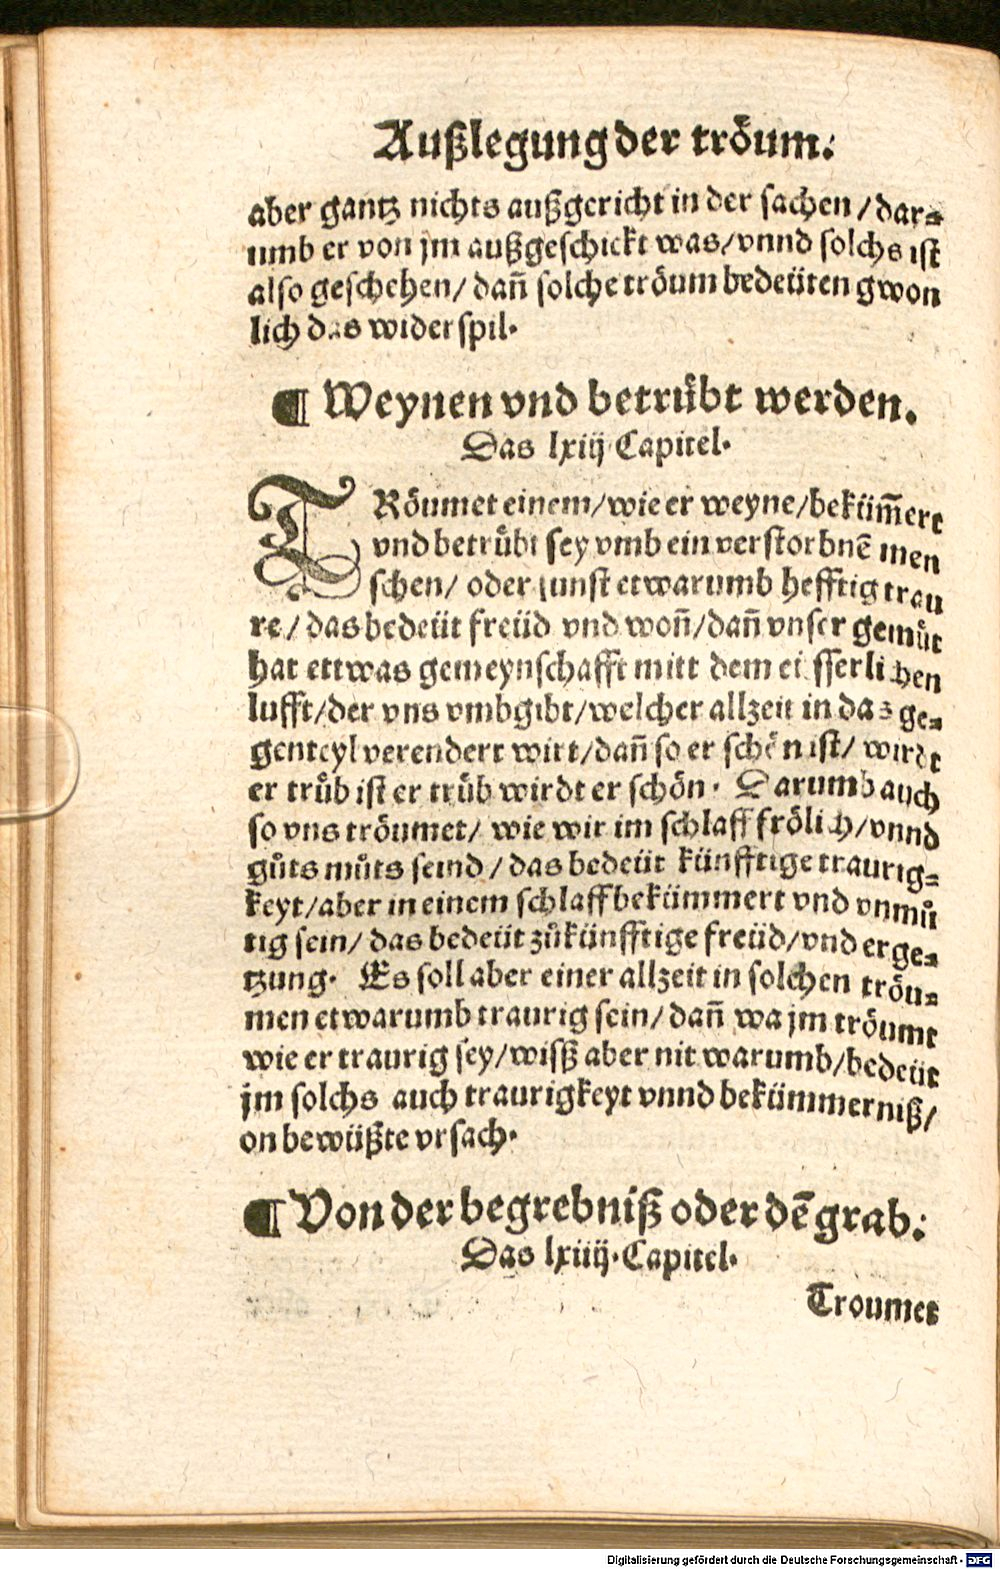 Außlegung der tröum:
aber gantz nichts außgericht in der sachen / dar⸗
umb er von jm außgeschickt was/vnnd solchs ist
also geschehen/ dañ solche tröum bedeüten gwon
lich das widerspil.
¶ Weynen vnd betrübt werden.
Das lxiij Capitel.
TRöumet einem/wie er weyne/beküm̃ert
vnd betrübt sey vmb ein verstorbnẽ men
schen/ oder sunst etwarumb hefftig trau
re/ das bedeüt freüd vnd won̄/dan̄ vnser gemüt
hat ettwas gemeynschafft mitt dem eüsserlichen
lufft/der vns vmbgibt/welcher allzeit in das ge⸗
genteyl verendert wirt/dan̄ so er schön ist/ wirdt
er trüb ist er trüb wirdt er schön. Darumb auch
so vns tröumet/ wie wir im schlaff frölich/vnnd
gůts můts seind / das bedeüt künfftige traurig⸗
keyt/aber in einem schlaff bekümmert vnd vnmů
tig sein/ das bedeüt zůkünfftige freüd/vnd erge⸗
tzung. Es soll aber einer allzeit in solchen tröu⸗
men etwarumb traurig sein/dan̄ wa jm tröumt
wie er traurig sey/wißß aber nit warumb/bedeüt
jm solchs auch traurigkeyt vnnd bekümmerniß/
on bewüßte vrsach.
¶ Von der begrebniß oder dẽ grab:
Das lxiiij. Capitel.
Troumet
Digitalisierung gefördert durch die Deutsche Forschungsgemeinschaft - DFG